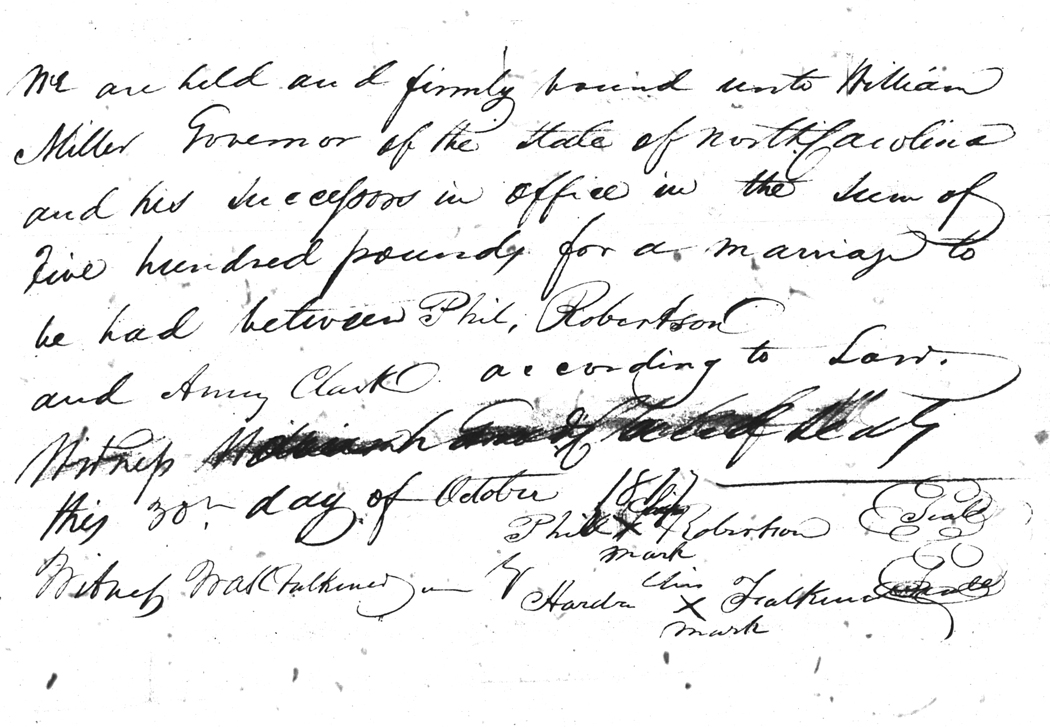 We are held and firmly bound unto William
Miller Governor of the State of North Carolina
and his successors in office in the sum of
Five hundred pounds for a marriage to
be had between Phil, Robertson
and Amy Clark according to Law.
Witness
this 30th day of October 1817
his
Phill X Robertson Seal
mark
Witness Falkener his
Hardn X Falkener Seal
mark